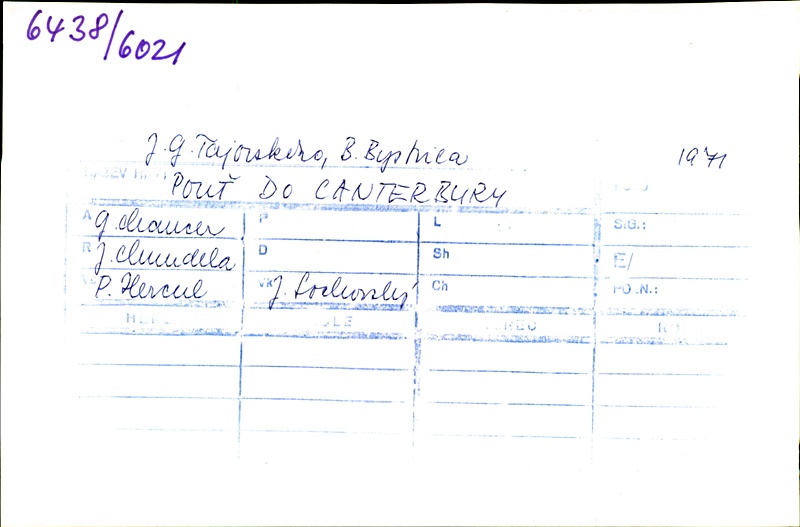 6438/6021
J.G. Tajovského, B. Bystrica 1971
POUŤ DO CANTERBURY
A G. Chaucer P L SIG.:
R J. Chundela D Sh E/
P. Hercul VK J. Sochorský Ch PO.N.: